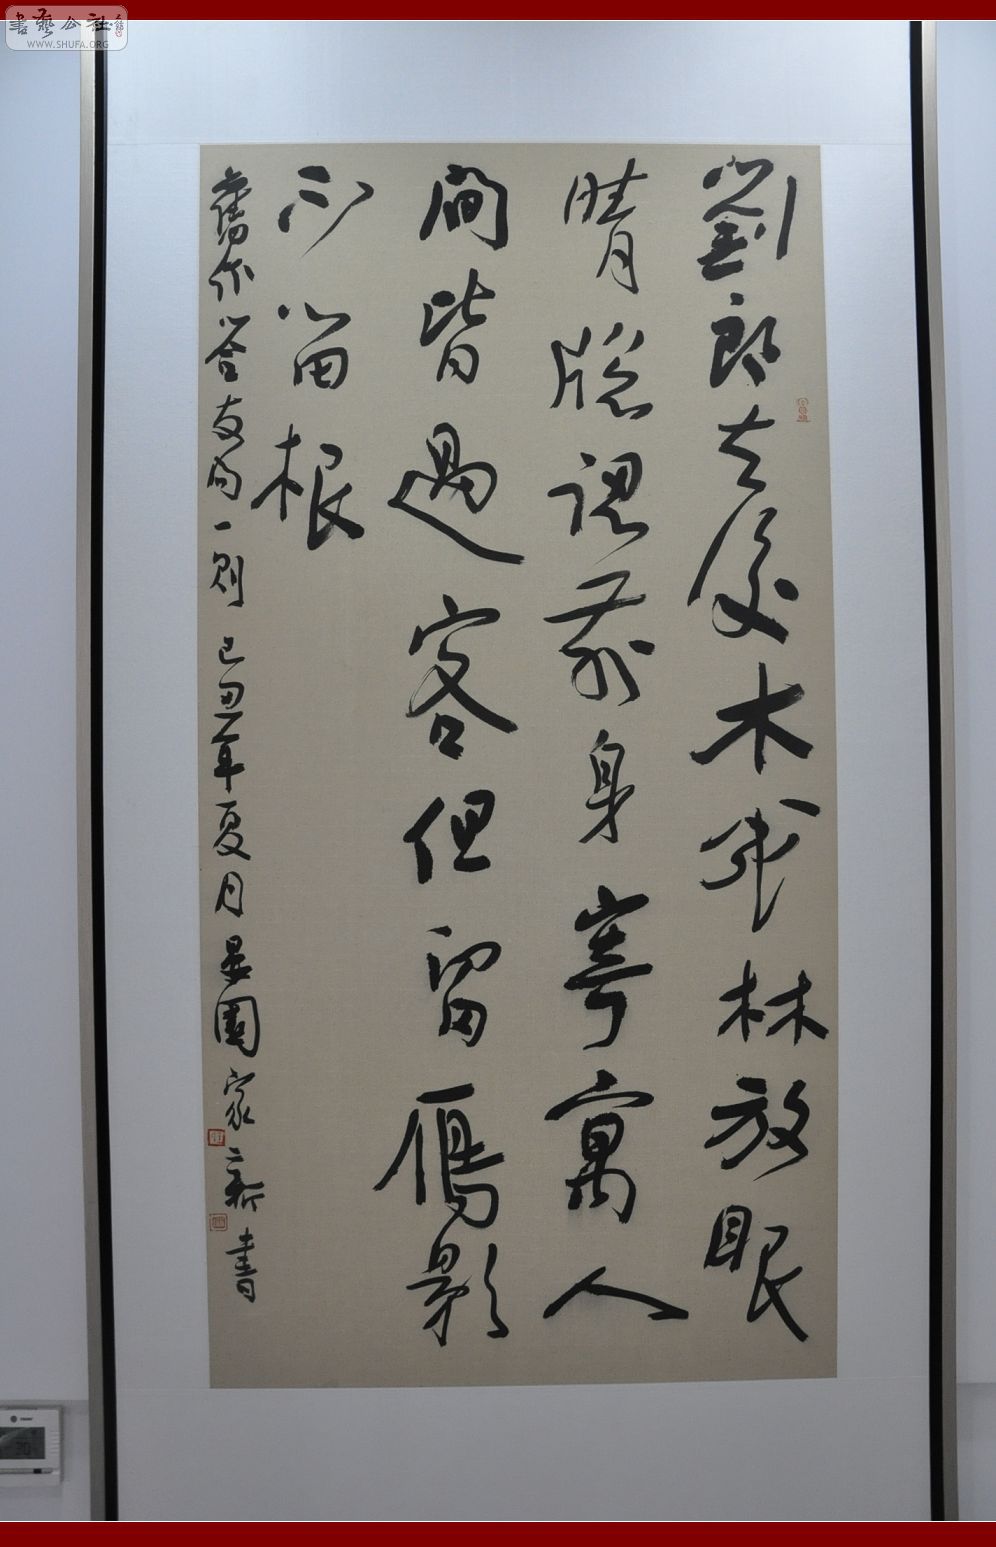 劉郎去後木成林放眼
晴牕認前身寄寓人
間皆過客但留雁影
不留根
舊作答友詢一則 己丑年夏月 晏園家新書
書藝公社
WWW.SHUFA.ORG